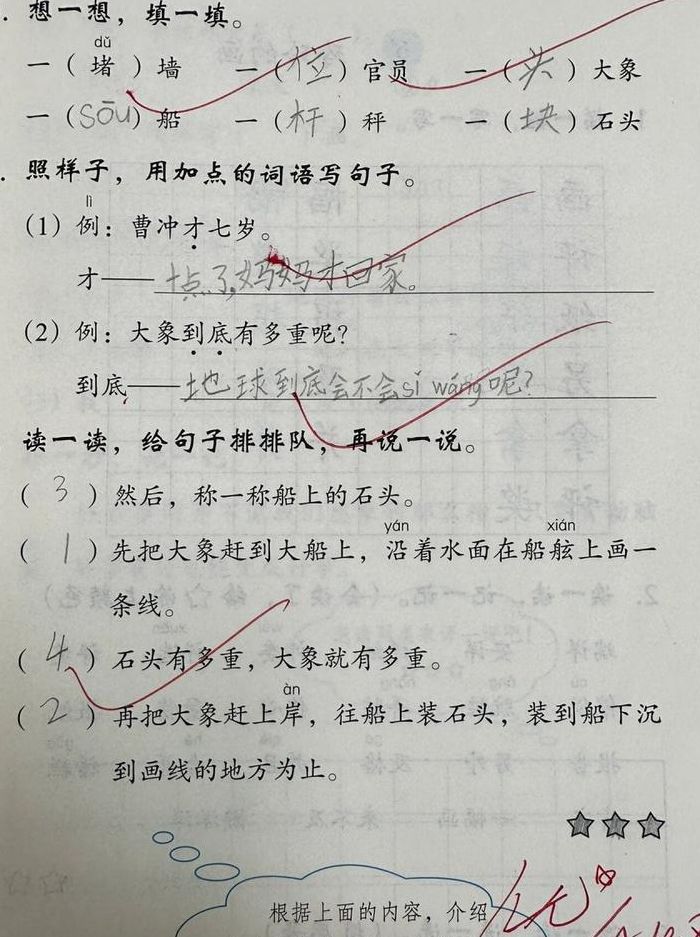 . 想一想，填一填。
dǔ
一（ 堵 ）墙 一（位）官员 一（头）大象
一（Sōu）船 一（杆）秤 一（块）石头
. 照样子，用加点的词语写句子。
lì
（1）例：曹冲才七岁。
才——十点了,妈妈才回家。
（2）例：大象到底有多重呢？
到底——地球到底会不会sǐ wáng呢？
读一读，给句子排排队，再说一说。
（ 3 ）然后，称一称船上的石头。
yán xián
（ 1 ）先把大象赶到大船上，沿着水面在船舷上画一
条线。
（ 4 ）石头有多重，大象就有多重。
àn
（ 2 ）再把大象赶上岸，往船上装石头，装到船下沉
到画线的地方为止。
根据上面的内容，介绍